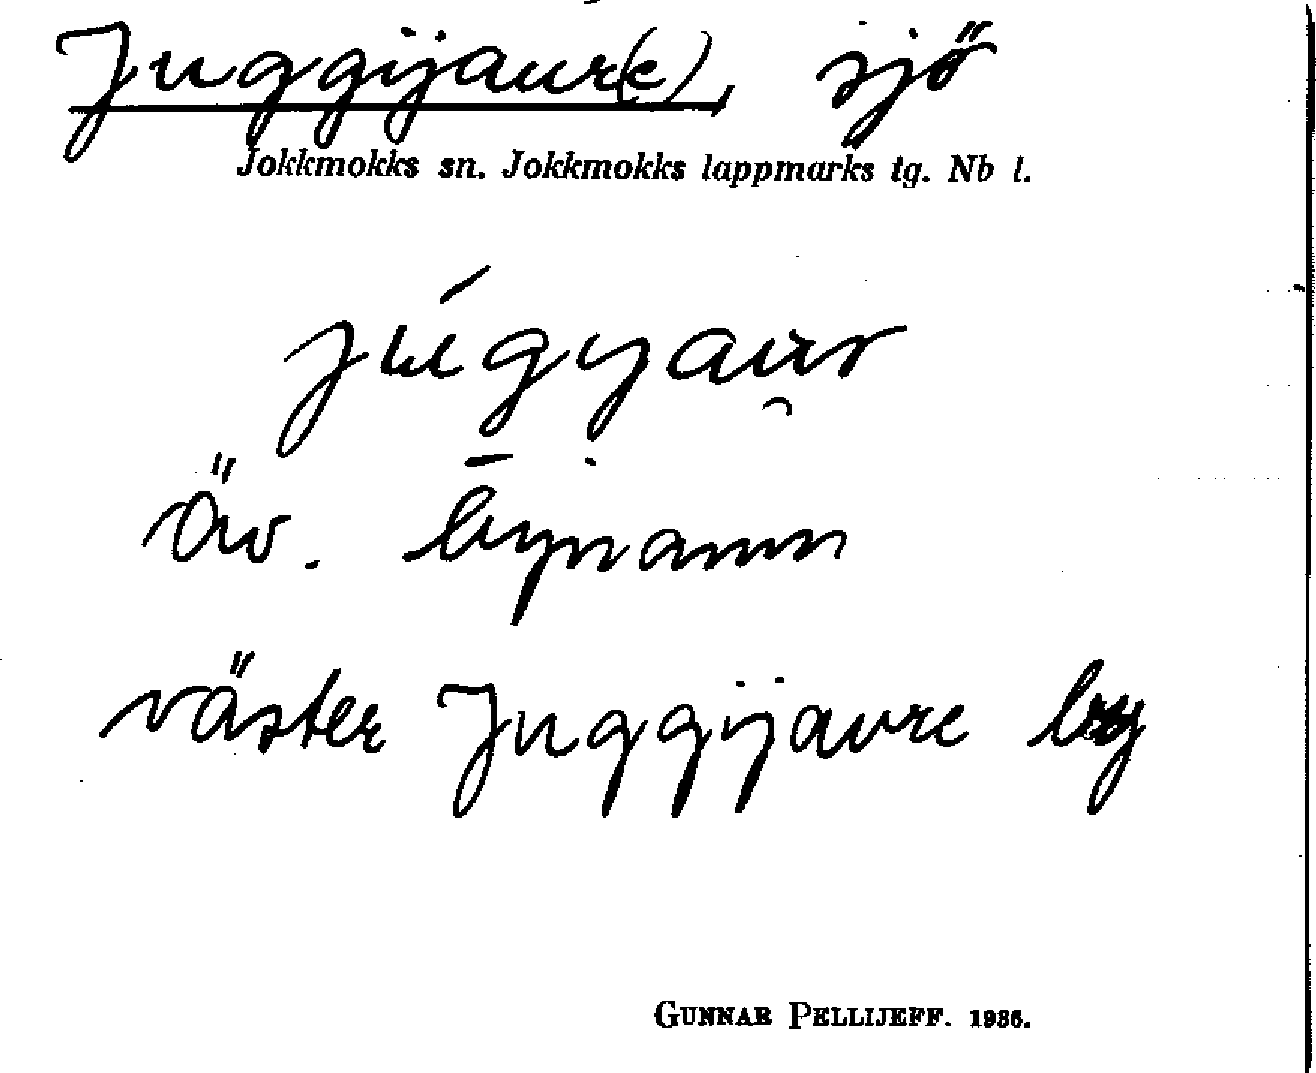 Juggijaur(e), sjö
Jokkmokks sn. Jokkmokks lappmarks tg. Nb l.
júgyau̯r
Äv. bynamn
väster Juggijaure by
GUNNAR PELLIJEFF. 1936.